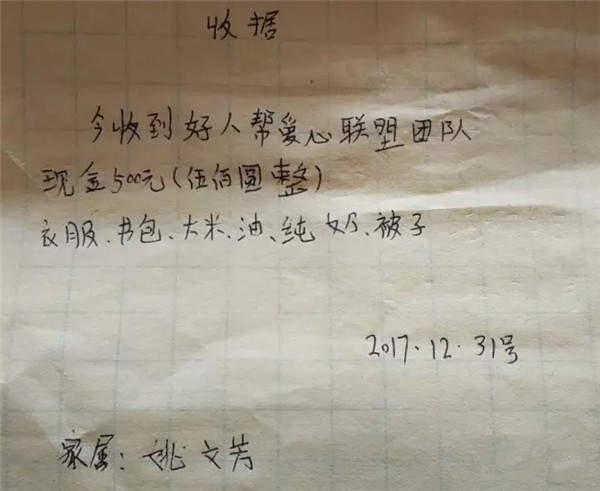 收据
今收到好人帮爱心联盟团队
现金500元(伍佰圆整)
衣服、书包、大米、油、纯奶、被子
2017.12.31号
家属:姚文芳